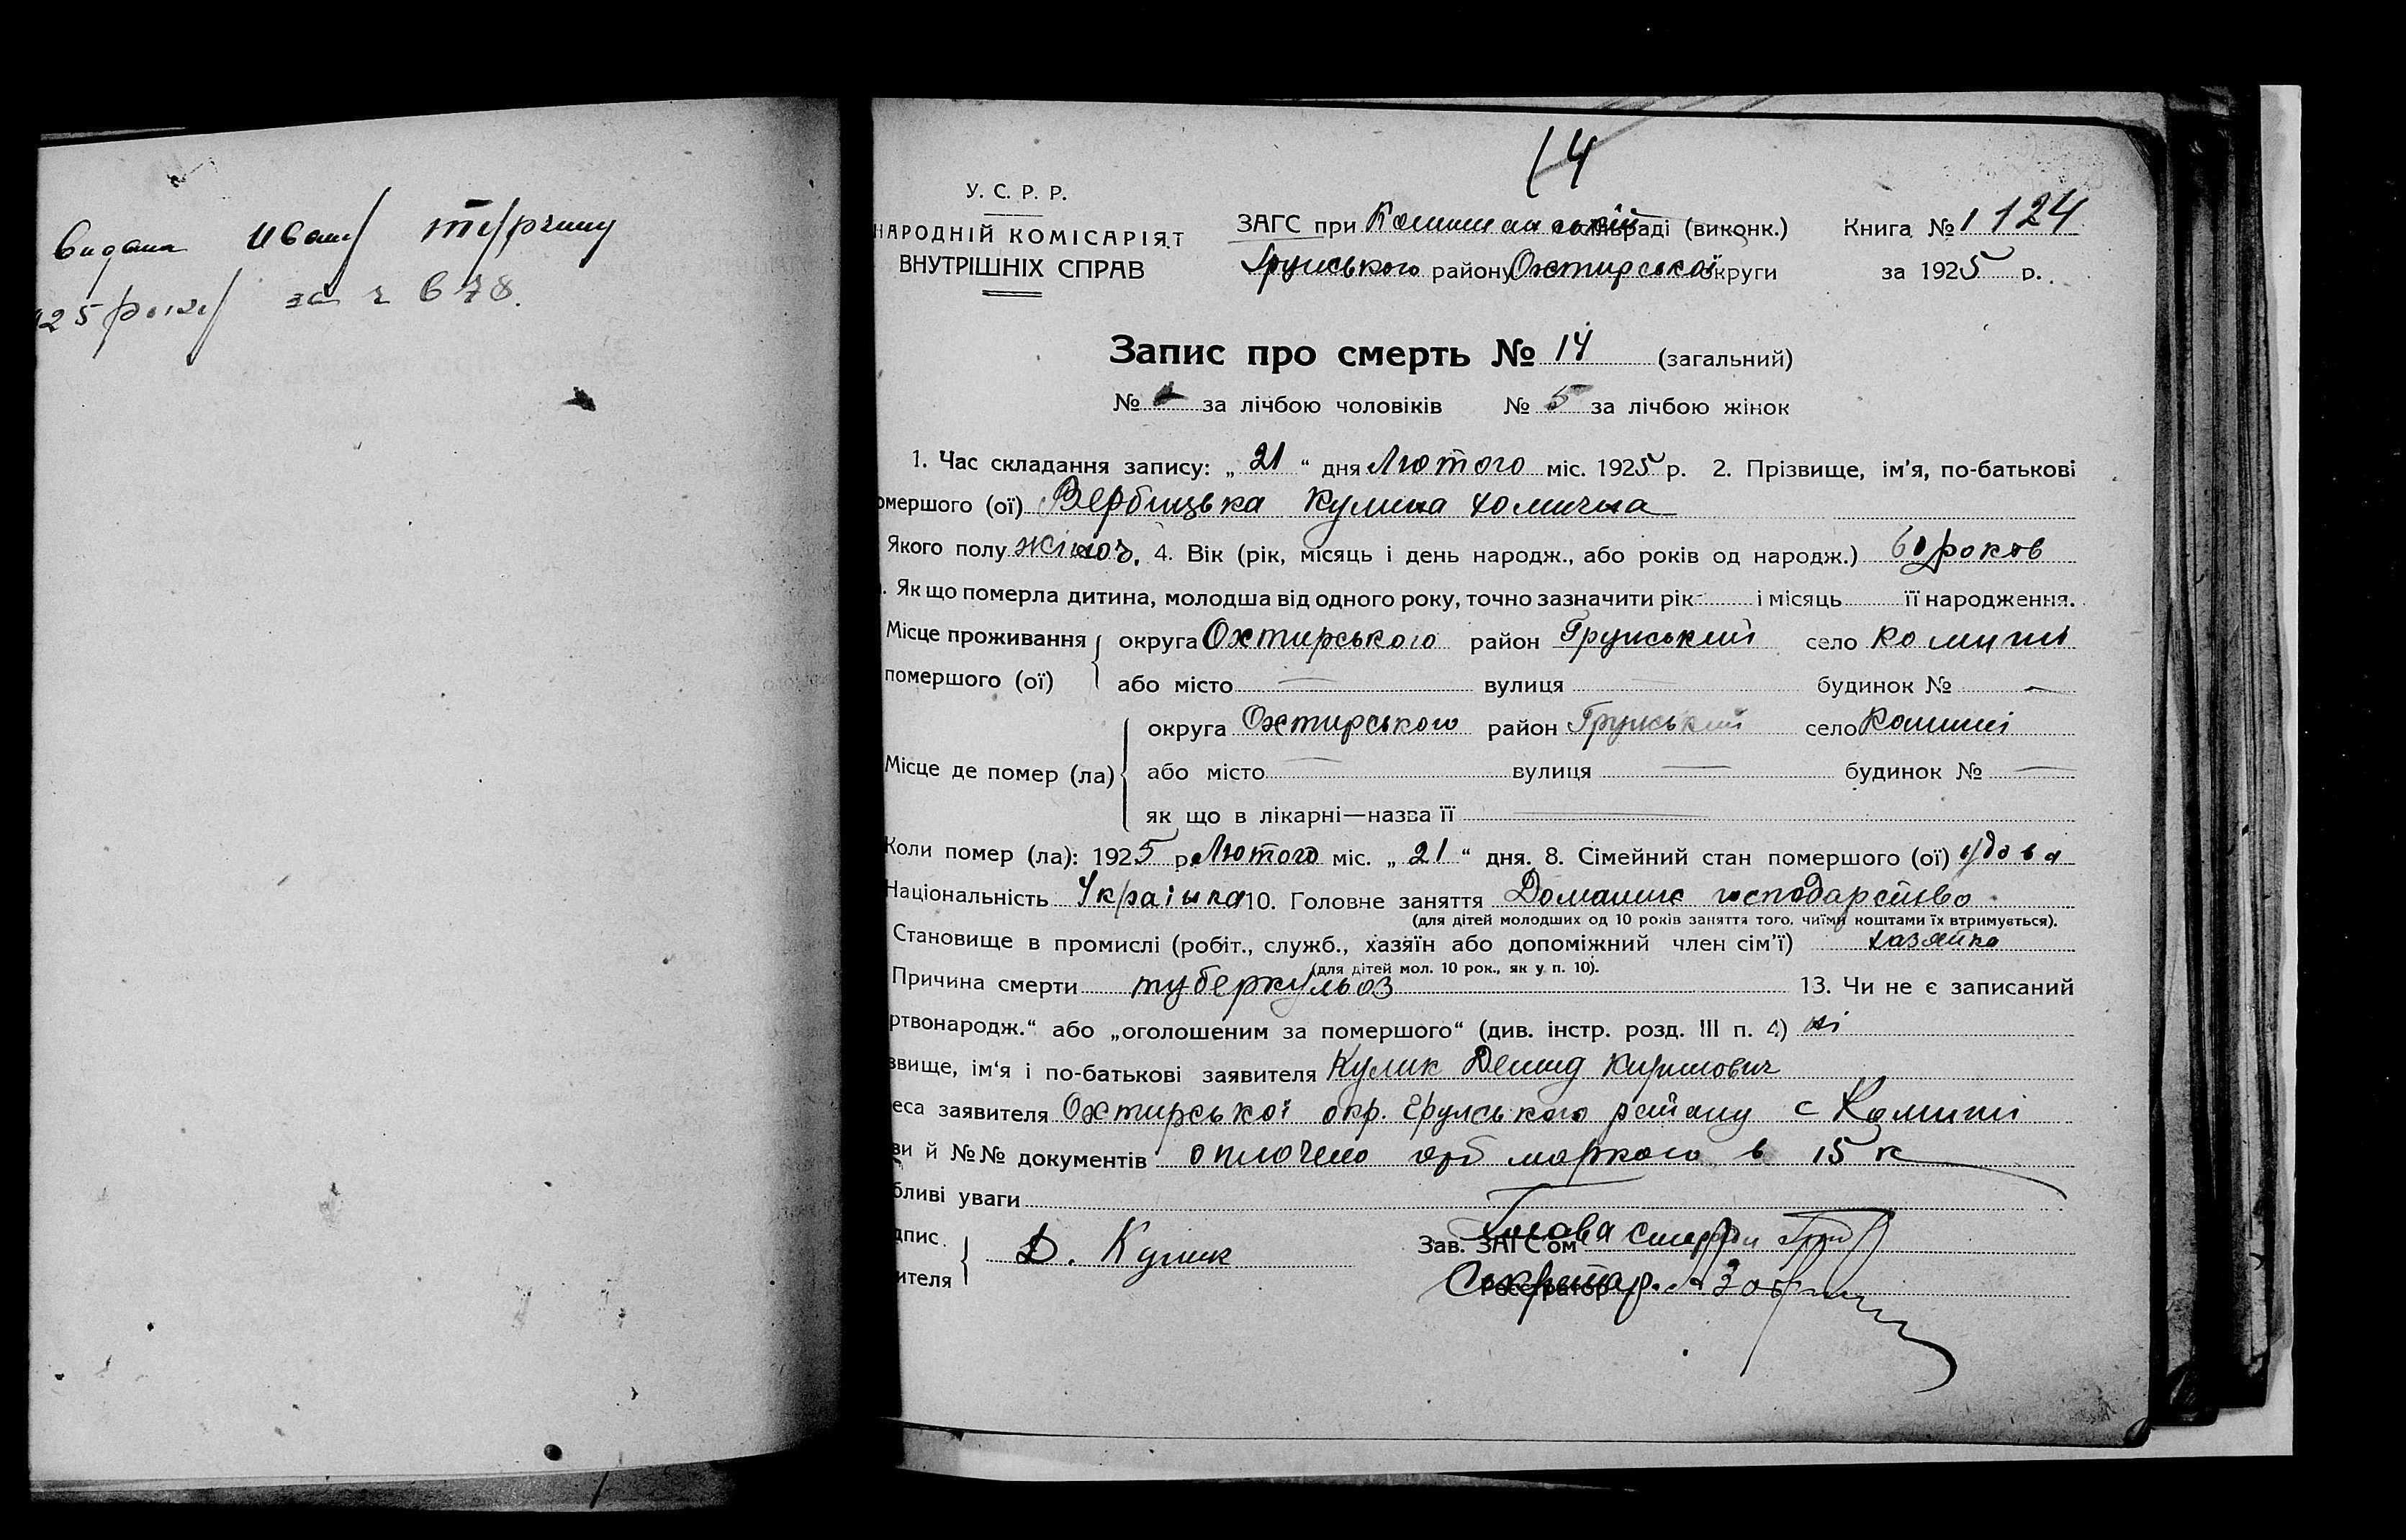 видана Ивану турчину
925 року за ч 678.
14
У. С. Р. Р.
НАРОДНІЙ КОМІСАРІЯТ
ВНУТРІШНІХ СПРАВ
ЗАГС при раді (виконк.)
Грунського району Охтирської округи
Книга № 1 124
за 1925 р.
Запис про смерть № 14 (загальний)
№ за лічбою чоловіків № 5 за лічбою жінок
1. Час складання запису: „ 21 “ дня Лютого міс. 1925 р. 2. Прізвище, ім'я, по-батькові
омершого (ої) Вербицька Кулина Хомична
Якого полу жіноч. 4. Вік (рік, місяць і день народж., або років од народж.) 60 роков
. Як що померла дитина, молодша від одного року, точно зазначити рік і місяць її народження.
Місце проживання округа Охтирського район Грунський село Комиші
помершого (ої) або місто — вулиця — будинок № —
округа Охтирського район Грунський село Комиші
Місце де помер (ла) або місто — вулиця — будинок № —
як що в лікарні—назва її —
Коли помер (ла): 1925 р. Лютого міс. „ 21 “ дня. 8. Сімейний стан помершого (ої) удова
Національність Українка 10. Головне заняття Домашнє господарство
(для дітей молодших од 10 років заняття того. чиїми коштами їх втримується).
Становище в промислі (робіт., служб., хазяїн або допоміжний член сім'ї) хазяйка
(для дітей мол. 10 рок., як у п. 10).
Причина смерти туберкульоз 13. Чи не є записаний
ртвонародж.“ або „оголошеним за помершого“ (див. інстр. розд. III п. 4) ні
звище, ім'я і по-батькові заявителя Кулик Демид
еса заявителя Охтирської окр. Грунського району с Комиші
ви й №№ документів оплочено маркою в 15 к
бливі уваги
дпис
ителя Д. Кулик
Зав. ЗАГС'ом Голова
Реєстратор Секретар